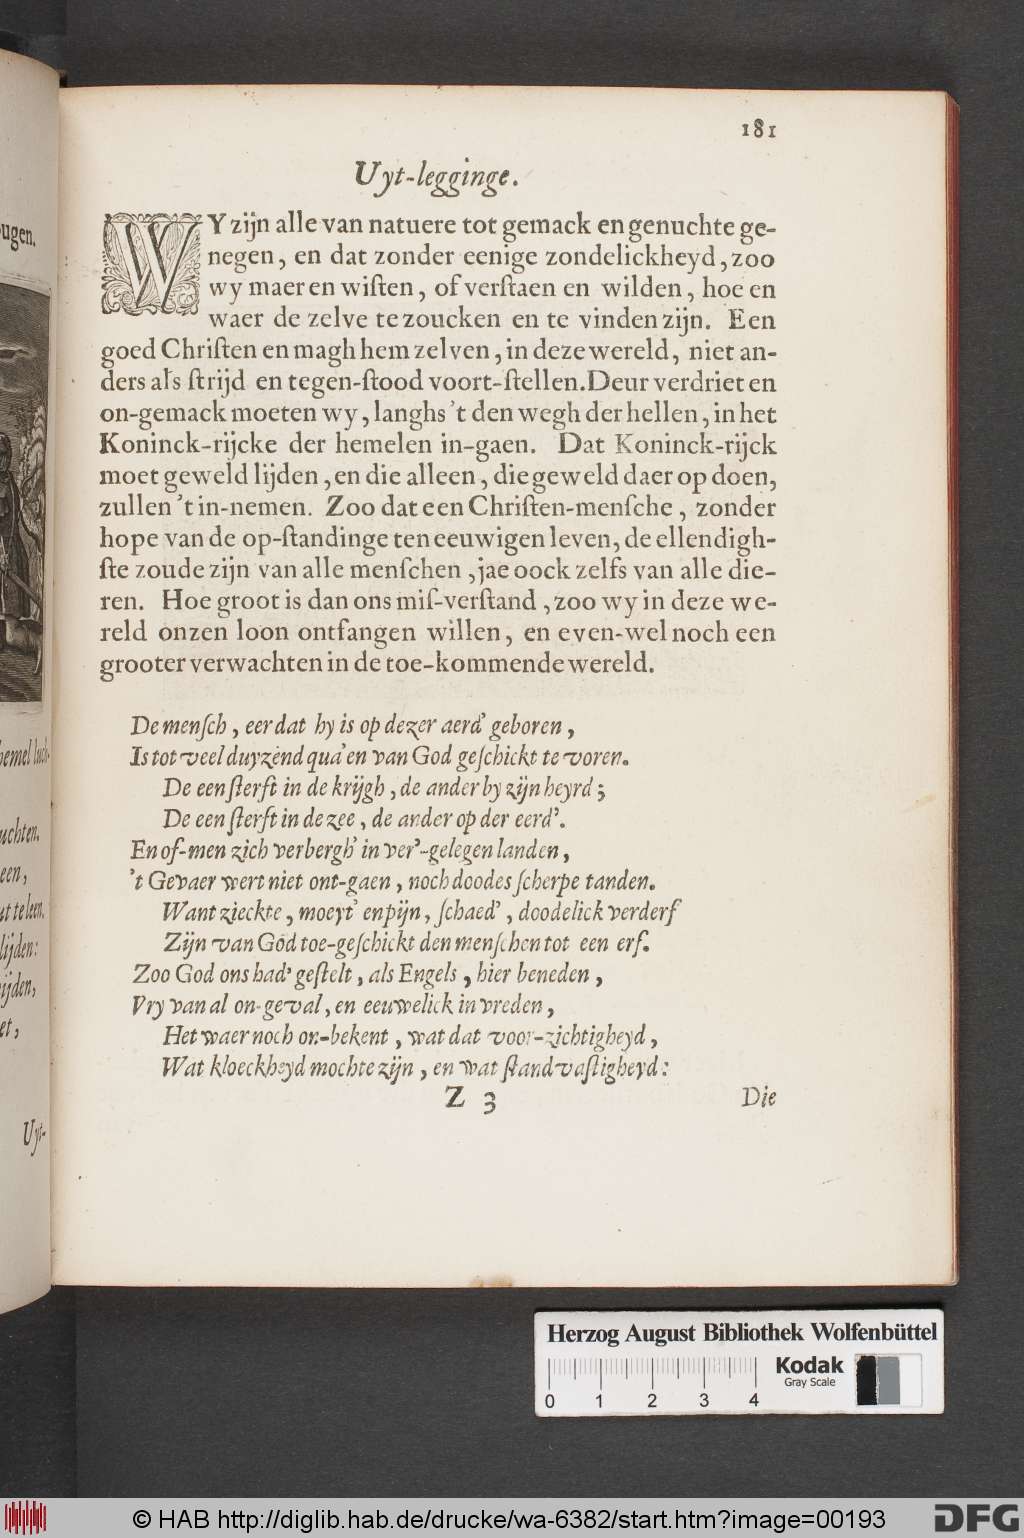 181
Uyt-legginge.
WY zijn alle van natuere tot gemack en genuchte ge-
negen, en dat zonder eenige zondelickheyd, zoo
wy maer en wiſten, of verſtaen en wilden, hoe en
waer de zelve te zoucken en te vinden zijn. Een
goed Chriſten en magh hem zelven, in deze wereld, niet an-
ders als ſtrijd en tegen-ſtood voort-ſtellen. Deur verdriet en
on-gemack moeten wy, langhs 't den wegh der hellen, in het
Koninck-rijcke der hemelen in-gaen. Dat Koninck-rijck
moet geweld lijden, en die alleen, die geweld daer op doen,
zullen 't in-nemen. Zoo dat een Chriſten-menſche, zonder
hope van de op-ſtandinge ten eeuwigen leven, de ellendigh-
ſte zoude zijn van alle menſchen, jae oock zelfs van alle die-
ren. Hoe groot is dan ons miſ-verſtand, zoo wy in deze we-
reld onzen loon ontfangen willen, en even-wel noch een
grooter verwachten in de toe-kommende wereld.
De menſch, eer dat hy is op dezer aerd' geboren,
Is tot veel duyzend qua'en van God geſchickt te voren.
De een ſterft in de krijgh, de ander by zijn heyrd;
De een ſterft in de zee, de ander op der eerd'.
En of-men zich verbergh' in ver'-gelegen landen,
't Gevaer wert niet ont-gaen, noch doodes ſcherpe tanden.
Want zieckte, moeyt' en pijn, ſchaed', doodelick verderf
Zijn van God toe-geſchickt den menſchen tot een erf.
Zoo God ons had' geſtelt, als Engels, hier beneden,
Vry van al on-geval, en eeuwelick in vreden,
Het waer noch on-bekent, wat dat voor-zichtigheyd,
Wat kloeckheyd mochte zijn, en wat ſtandvaſtigheyd:
Z 3 Die
ugen.
uchten.
een,
lijden:
ijden,
et,
Uyt-
Herzog August Bibliothek Wolfenbüttel
Kodak
Gray Scale
0 1 2 3 4
© HAB http://diglib.hab.de/drucke/wa-6382/start.htm?image=00193
DFG